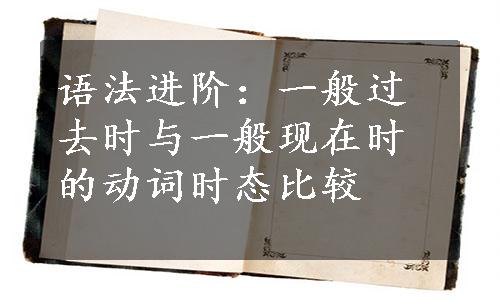 语法进阶：一般过
去时与一般现在时
的动词时态比较